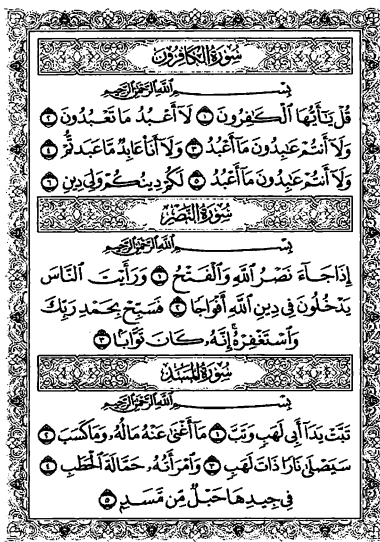 سُورَةُ الكَافِرُونَ
بِسْمِ اللَّهِ الرَّحْمَٰنِ الرَّحِيمِ
قُلْ يَٰٓأَيُّهَا الْكَٰفِرُونَ ١ لَآ أَعْبُدُ مَا تَعْبُدُونَ ٢
وَلَآ أَنتُمْ عَٰبِدُونَ مَآ أَعْبُدُ ٣ وَلَآ أَنَا۠ عَابِدٌ مَّا عَبَدتُّمْ ٤
وَلَآ أَنتُمْ عَٰبِدُونَ مَآ أَعْبُدُ ٥ لَكُمْ دِينُكُمْ وَلِيَ دِينِ ٦
سُورَةُ النَّصْرِ
بِسْمِ اللَّهِ الرَّحْمَٰنِ الرَّحِيمِ
إِذَا جَآءَ نَصْرُ اللَّهِ وَالْفَتْحُ ١ وَرَأَيْتَ النَّاسَ
يَدْخُلُونَ فِي دِينِ اللَّهِ أَفْوَاجًا ٢ فَسَبِّحْ بِحَمْدِ رَبِّكَ
وَاسْتَغْفِرْهُ ۚ إِنَّهُۥ كَانَ تَوَّابًۢا ٣
سُورَةُ المَسَدِ
بِسْمِ اللَّهِ الرَّحْمَٰنِ الرَّحِيمِ
تَبَّتْ يَدَآ أَبِي لَهَبٍ وَتَبَّ ١ مَآ أَغْنَىٰ عَنْهُ مَالُهُۥ وَمَا كَسَبَ ٢
سَيَصْلَىٰ نَارًا ذَاتَ لَهَبٍ ٣ وَامْرَأَتُهُۥ حَمَّالَةَ الْحَطَبِ ٤
فِي جِيدِهَا حَبْلٌ مِّن مَّسَدٍۭ ٥